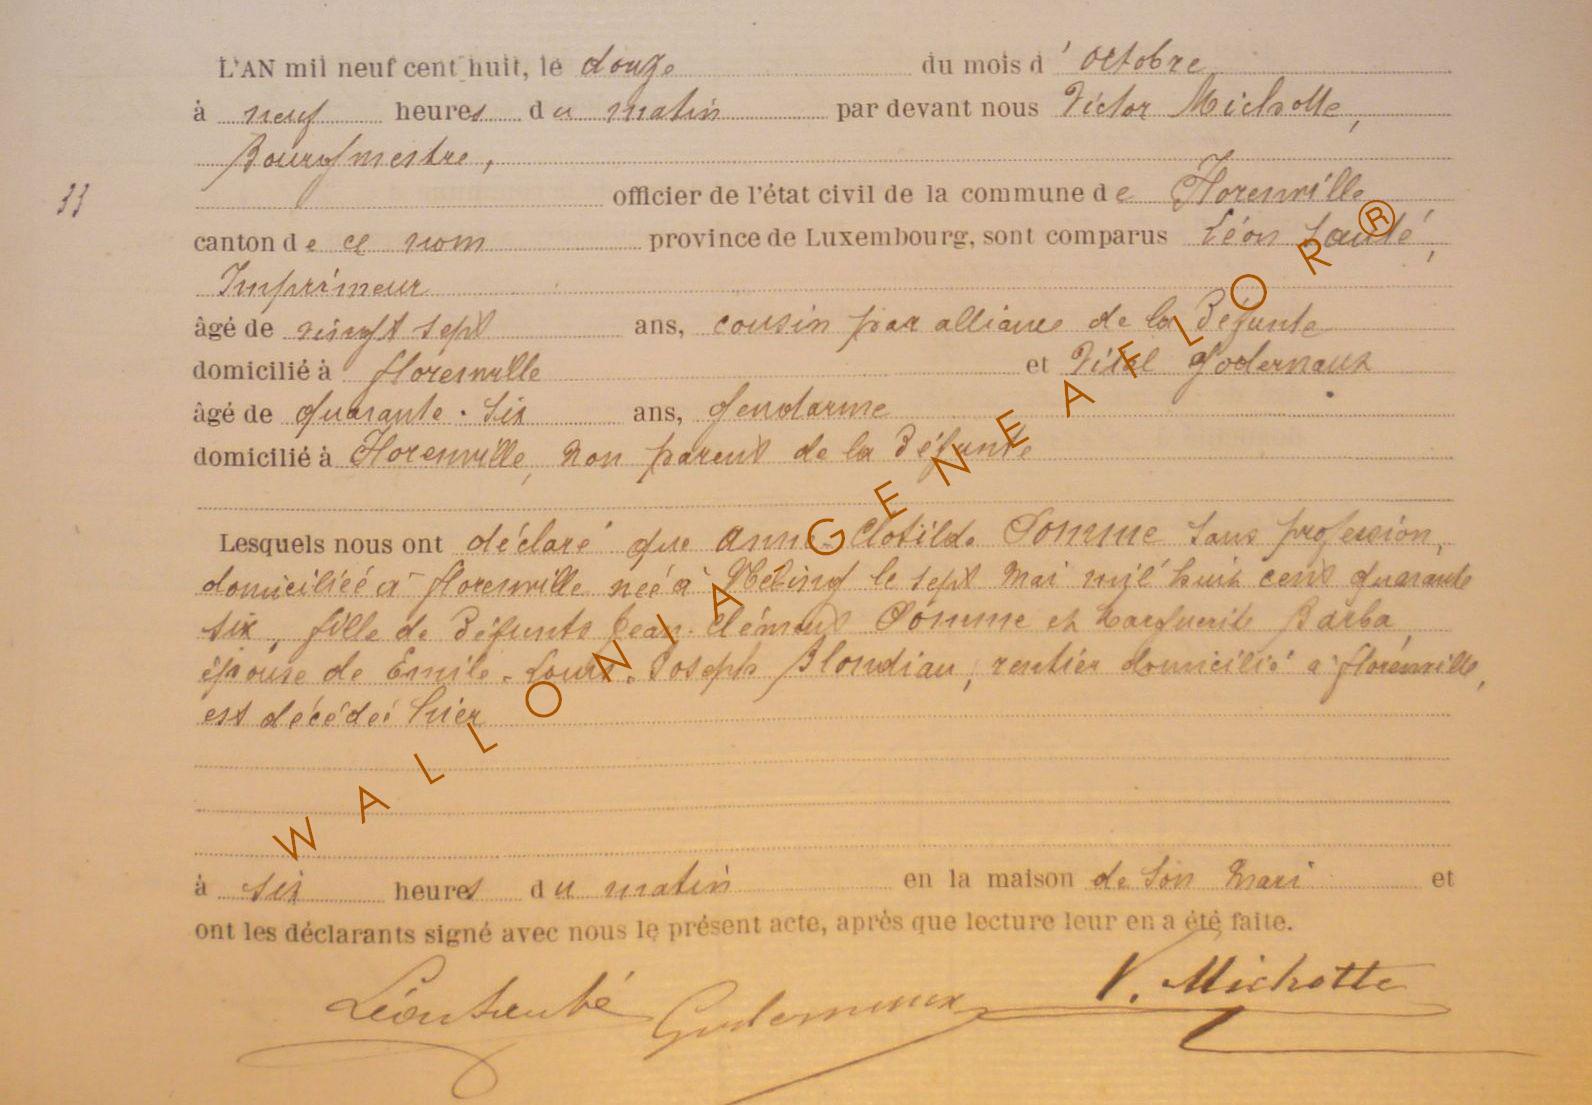 L'AN mil neuf cent huit, le douze du mois d'octobre
à neuf heures du matin par devant nous Victor Michotte,
Bourgmestre,
33 officier de l'état civil de la commune de Florenville
canton de ce nom province de Luxembourg, sont comparus Léon Santé,
Imprimeur
âgé de vingt sept ans, cousin par alliance de la Défunte
domicilié à florenville et Vital Godernaux
âgé de quarante-six ans, gendarme
domicilié à Florenville, non parent de la Défunte
Lesquels nous ont déclaré que Anne-Clotilde Pomme sans profession,
domiciliéé à florenville néé à le sept Mai mil huit cent quarante
six, fille de Défunts Jean-Clément Pomme et Marguerite Barba,
épouse de Emile-Louis-Joseph Blondiau, rentier domicilié à florenville,
est décédéé hier
à six heures du matin en la maison de Son Mari et
ont les déclarants signé avec nous le présent acte, après que lecture leur en a été faite.
Léon Santé Godernaux V. Michotte
WALLONIA GENEAFLOR®